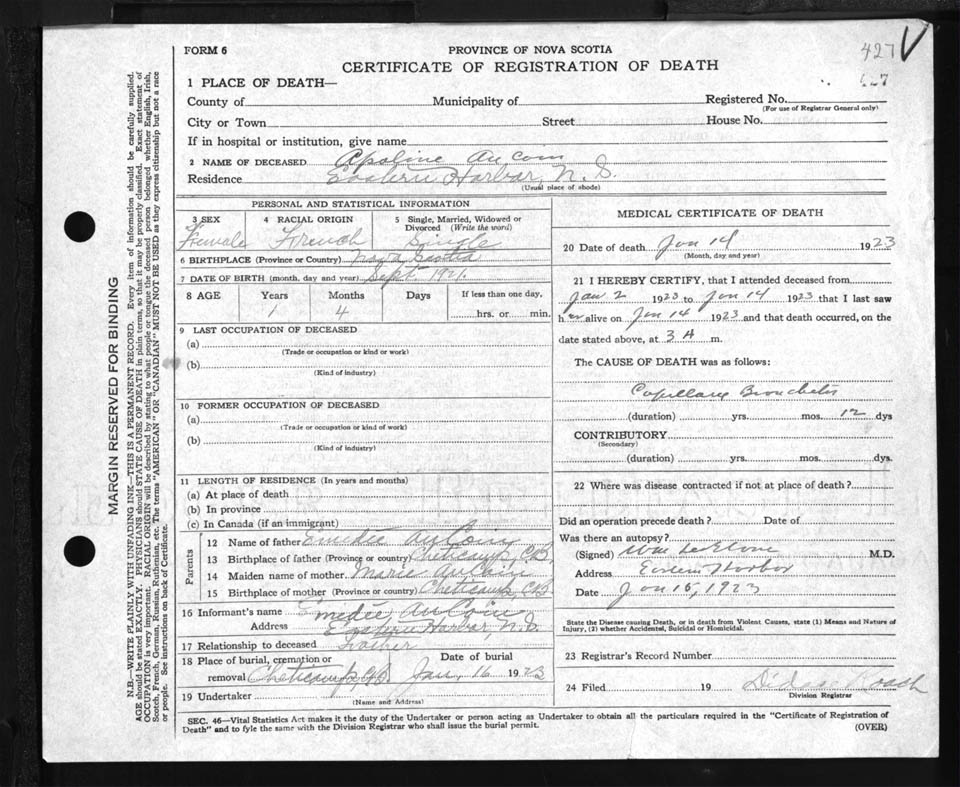 FORM 6
PROVINCE OF NOVA SCOTIA
427
CERTIFICATE OF REGISTRATION OF DEATH
1 PLACE OF DEATH—
County of Municipality of Registered No.
(For use of Registrar General only)
City or Town Street House No.
If in hospital or institution, give name
2 NAME OF DECEASED Apoline AuCoin
Residence Eastern Harbor, N. S.
(Usual place of abode)
PERSONAL AND STATISTICAL INFORMATION
3 SEX 4 RACIAL ORIGIN 5 Single, Married, Widowed or Divorced (Write the word)
Female French Single
6 BIRTHPLACE (Province or Country) Nova Scotia
7 DATE OF BIRTH (month, day and year) Sept 1921
8 AGE Years Months Days If less than one day,
1 4 hrs. or min.
9 LAST OCCUPATION OF DECEASED
(a)
(Trade or occupation or kind or work)
(b)
(Kind of industry)
10 FORMER OCCUPATION OF DECEASED
(a)
(Trade or occupation or kind of work)
(b)
(Kind of industry)
11 LENGTH OF RESIDENCE (In years and months)
(a) At place of death
(b) In province
(c) In Canada (if an immigrant)
Parents
12 Name of father Emedée AuCoin
13 Birthplace of father (Province or country) Cheticamp, C.B.
14 Maiden name of mother Marie AuCoin
15 Birthplace of mother (Province or country) Cheticamp C.B.
16 Informant's name Emedée AuCoin
Address Eastern Harbor, N.S.
17 Relationship to deceased Father
18 Place of burial, cremation or removal Cheticamp, C.B. Date of burial Jan. 16 1923
19 Undertaker
(Name and Address)
MEDICAL CERTIFICATE OF DEATH
20 Date of death Jan 14 1923
(Month, day and year)
21 I HEREBY CERTIFY, that I attended deceased from
Jan 2 1923 to Jan 14 1923 that I last saw
her alive on Jan 14 1923 and that death occurred, on the
date stated above, at 3 A m.
The CAUSE OF DEATH was as follows:
Capillary Bronchitis
(duration) yrs. mos. 12 dys
CONTRIBUTORY
(Secondary)
(duration) yrs. mos. dys.
22 Where was disease contracted if not at place of death?
Did an operation precede death? Date of
Was there an autopsy?
(Signed) Wm M.D.
Address Eastern Harbor
Date Jan 15, 1923
State the Disease causing Death, or in death from Violent Causes, state (1) Means and Nature of
Injury, (2) whether Accidental, Suicidal or Homicidal.
23 Registrar's Record Number
24 Filed 19
Division Registrar
SEC. 46—Vital Statistics Act makes it the duty of the Undertaker or person acting as Undertaker to obtain all the particulars required in the "Certificate of Registration of
Death" and to fyle the same with the Division Registrar who shall issue the burial permit.
(OVER)
MARGIN RESERVED FOR BINDING
N.B.—WRITE PLAINLY WITH UNFADING INK—THIS IS A PERMANENT RECORD. Every item of information should be carefully supplied.
AGE should be stated EXACTLY. PHYSICIANS should STATE CAUSE OF DEATH in plain terms, so that it may be properly classified. Exact statement of
OCCUPATION is very important. RACIAL ORIGIN will be described by stating to what people or tongue the deceased person belonged whether English, Irish,
Scotch, French, German, Russian, Ruthenian, etc. The terms "AMERICAN" OR "CANADIAN" MUST NOT BE USED as they express citizenship but not a race
or people. See instructions on back of Certificate.